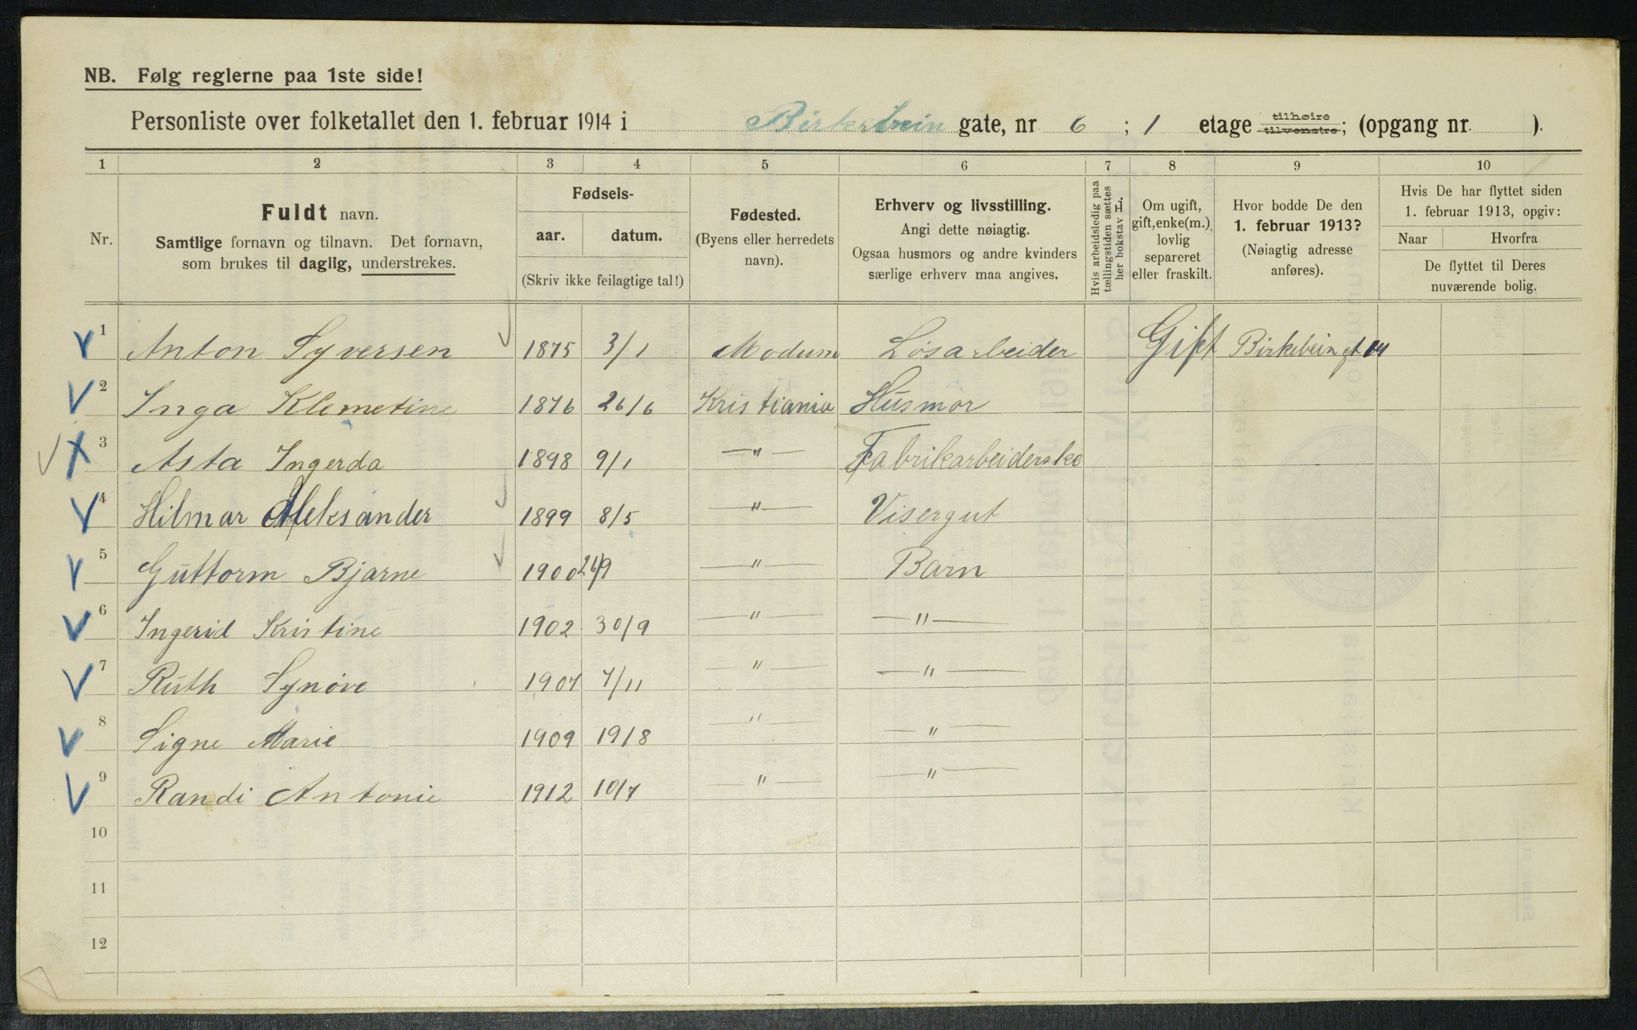 NB. Følg reglerne paa 1ste side!
Personliste over folketallet den 1. februar 1914 i Birkebein gate, nr 6 ; 1 etage tilhøire tilvenstre; (opgang nr. ).
1 2 3 4 5 6 7 8 9 10
Nr.
Fuldt navn.
Samtlige fornavn og tilnavn. Det fornavn,
som brukes til daglig, understrekes.
Fødsels-
aar. datum.
(Skriv ikke feilagtige tal!)
Fødested.
(Byens eller herredets
navn).
Erhverv og livsstilling.
Angi dette nøiagtig.
Ogsaa husmors og andre kvinders
særlige erhverv maa angives.
Hvis arbeidsledig paa
tællingstiden sættes
her bokstav L.
Om ugift,
gift, enke(m.),
lovlig
separeret
eller fraskilt.
Hvor bodde De den
1. februar 1913?
(Nøiagtig adresse
anføres).
Hvis De har flyttet siden
1. februar 1913, opgiv:
Naar Hvorfra
De flyttet til Deres
nuværende bolig.
1 Anton Syversen 1875 3/1 Modum Løsarbeider Gift Birkebein gt 14
2 Inga Klemetine 1876 26/6 Kristiania Husmor
3 Asta Ingerda 1898 9/1 —"— Fabrikarbeiderske
4 Hilmar Aleksander 1899 8/5 —"— Visergut
5 Guttorm Bjarne 1900 26/9 —"— Barn
6 Ingerid Kristine 1902 30/9 —"— —"—
7 Ruth Synøve 1907 7/11 —"— —"—
8 Signe Marie 1909 19/8 —"— —"—
9 Randi Antonie 1912 10/7 —"— —"—
10
11
12